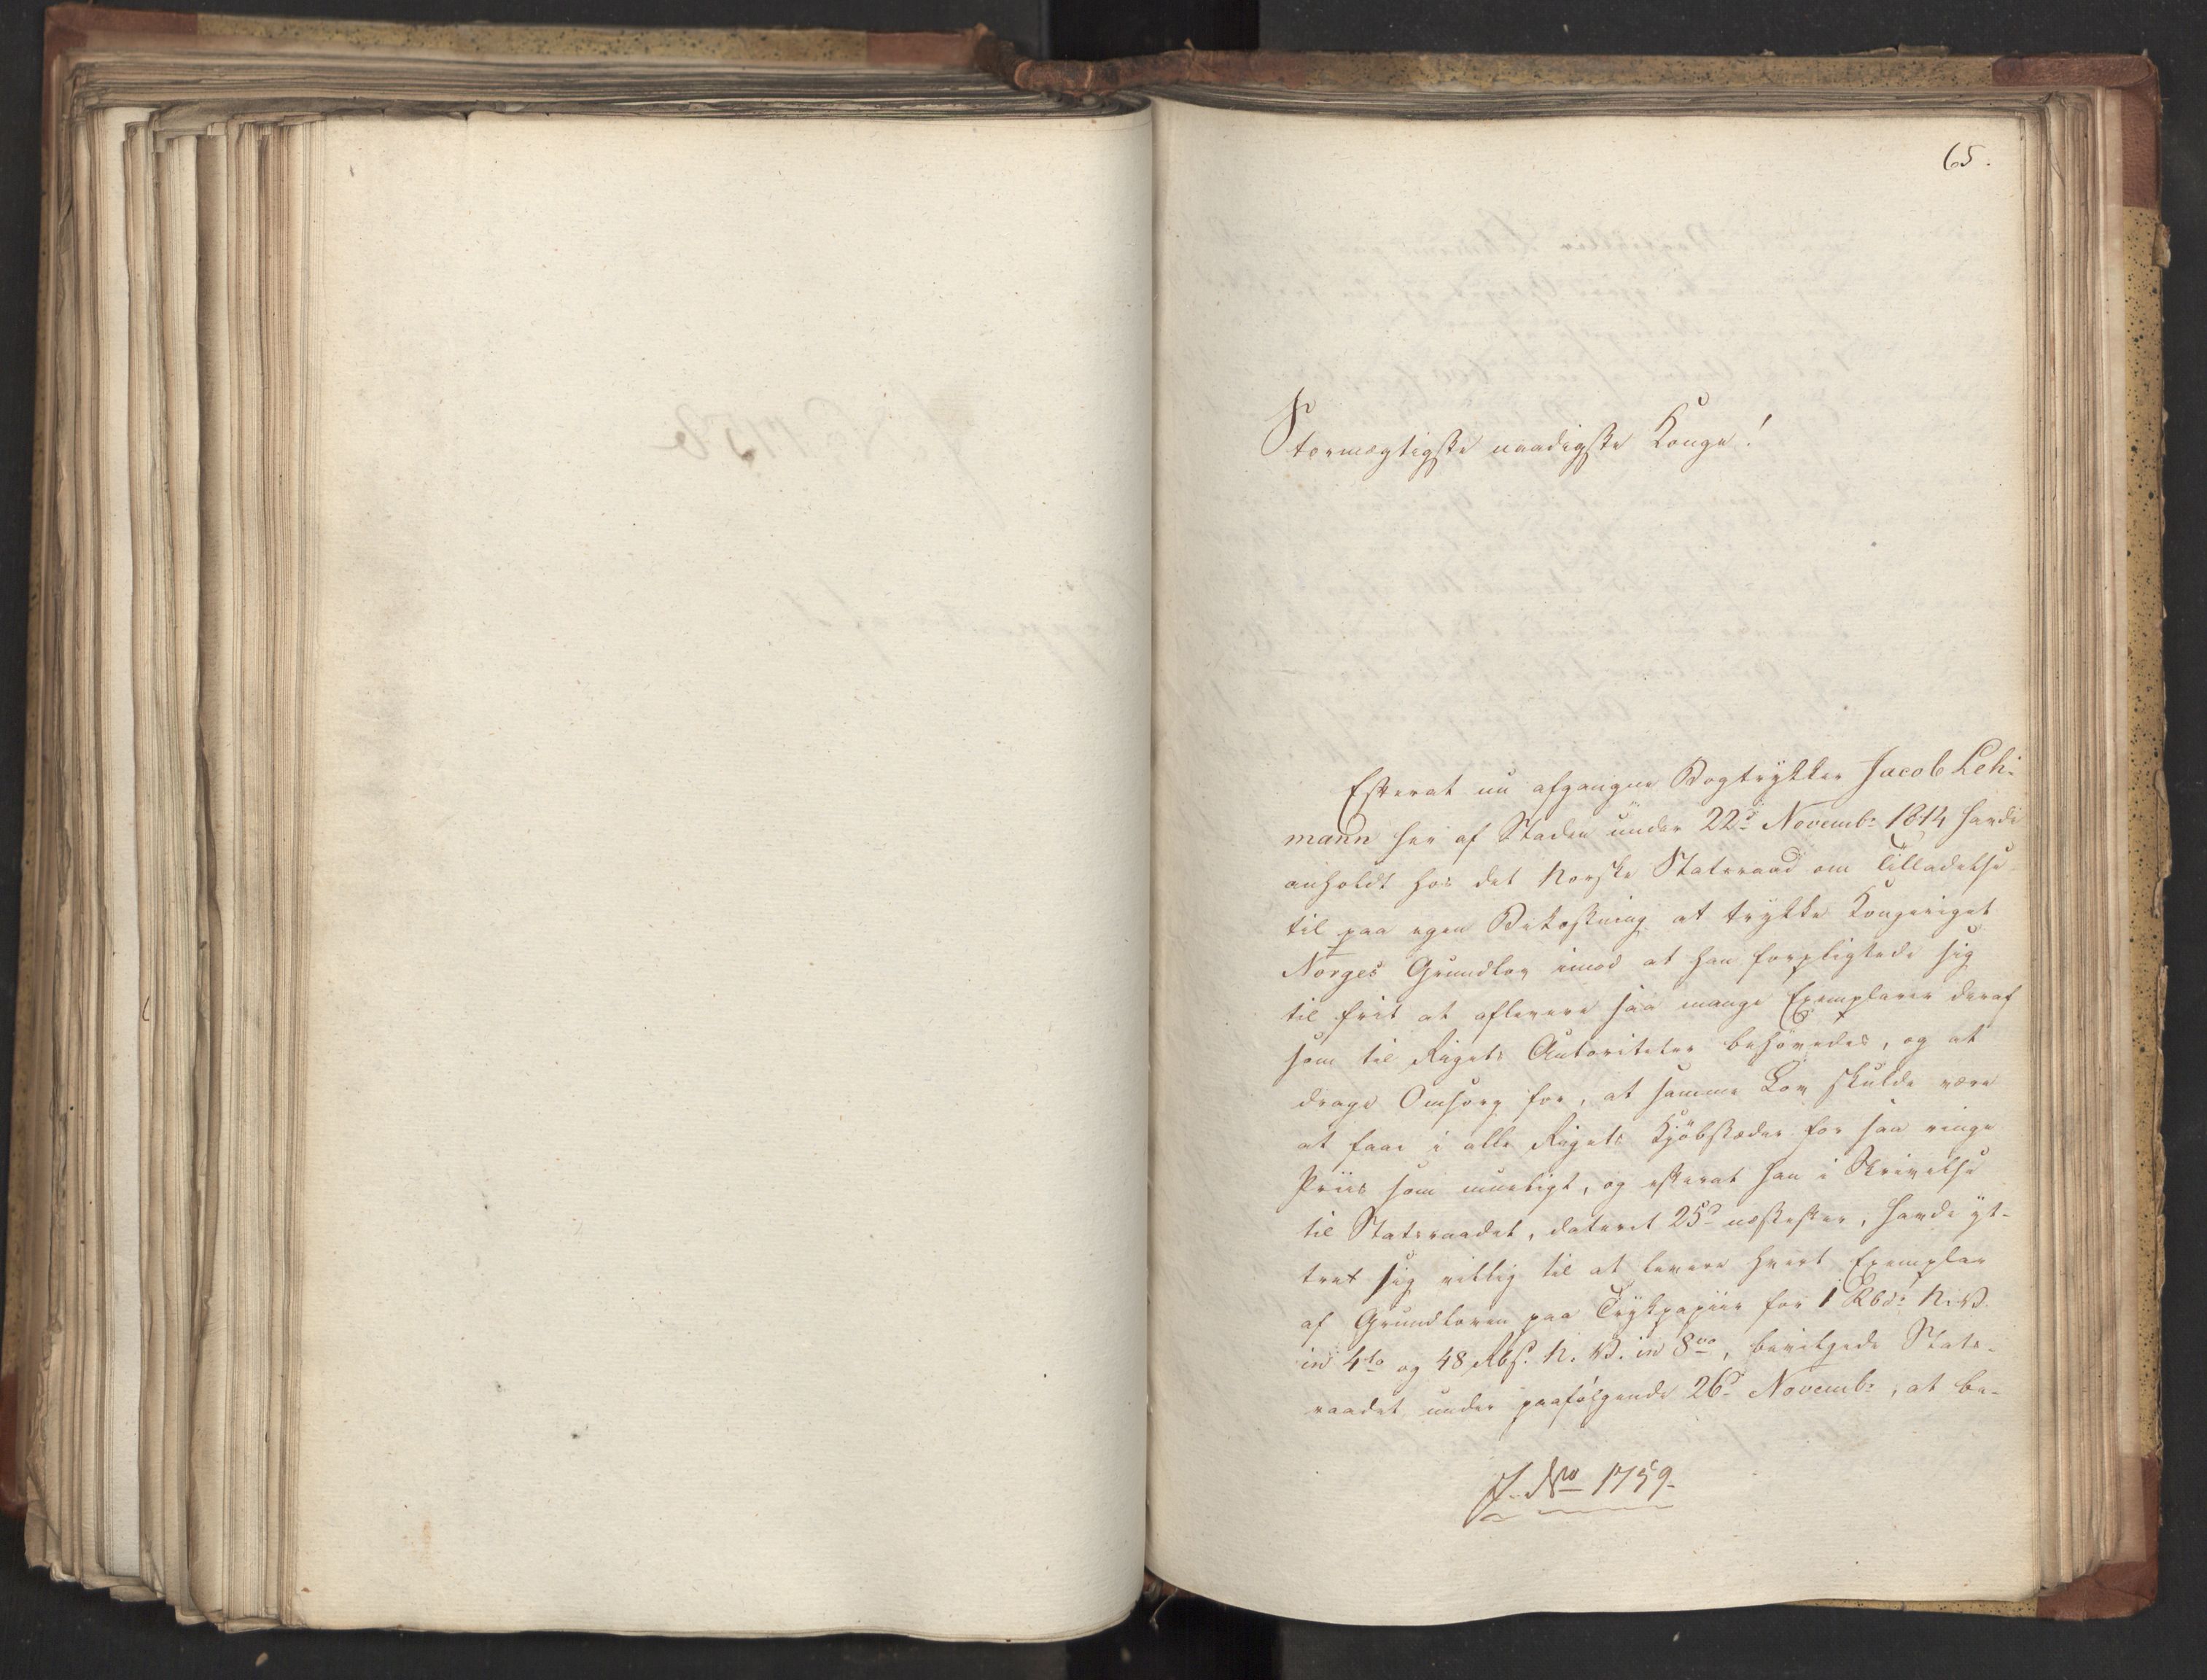 65.
Stormægtigste naadigste Konge!
Efterat nu afgangne Bogtrykker Jacob Leh-
mann her af Staden under 22d Novembr 1814 havde
anholdt hos det Norske Statsraad om Tilladelse
til paa egen Bekostning at trykke Kongeriget
Norges Grundlov imod at han forpligtede sig
til frit at aflevere saa mange Exemplarer deraf
som til Rigets Autoriteter behøvedes, og at
drage Omsorg for, at samme Lov skulde være
at faae i alle Rigets Kjøbstæder for saa ringe
Priis som mueligt, og efterat han i Skrivelse
til Statsraadet, dateret 25d næstefter, havde yt-
tret sig villig til at levere hvert Exemplar
af Grundloven paa Trykpapiir for 1 Rbdr N.V.
in 4to og 48 Rbs. N. V. in 8vo, bevilgede Stats-
raadet under paafølgende 26d Novembr, at be-
J. No 1759.